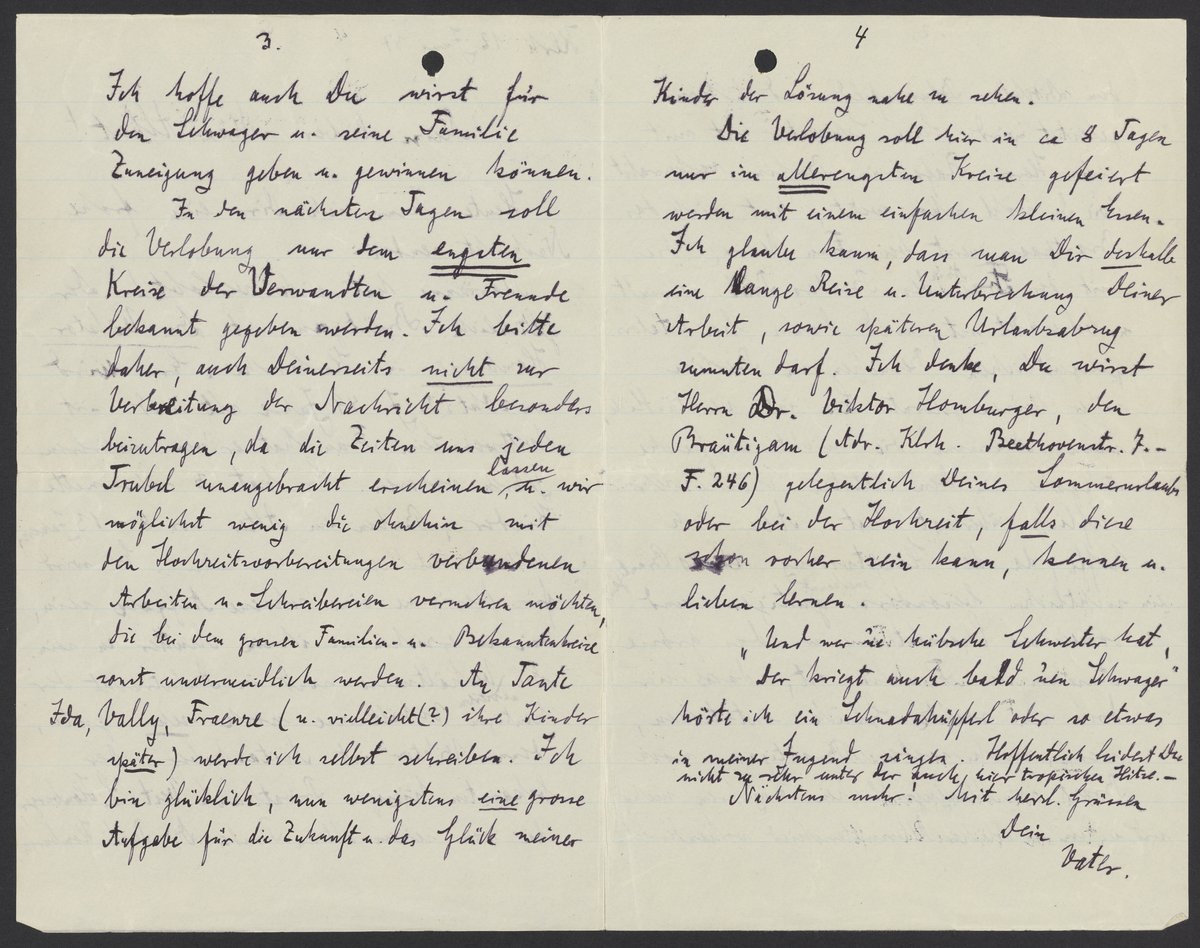 3.
Ich hoffe auch Du wirst für
den Schwager u. seine Familie
Zuneigung geben u. gewinnen können.
In den nächsten Tagen soll
die Verlobung nur dem engsten
Kreise der Verwandten u. Freunde
bekannt gegeben werden. Ich bitte
daher, auch Deinerseits nicht zur
Verbreitung der Nachricht besonders
beizutragen, da die Zeiten uns jeden
Trubel unangebracht erscheinen lassen, u. wir
möglichst wenig die ohnehin mit
den Hochzeitsvorbereitungen verbundenen
Arbeiten u. Schreibereien vermehren möchten,
die bei dem grossen Familien- u. Bekanntenkreise
sonst unvermeidlich werden. An Tante
Ida, Vally, Fraenze (u. vielleicht(?) ihre Kinder
später) werde ich selbst schreiben. Ich
bin glücklich, nun wenigstens eine grosse
Aufgabe für die Zukunft u. das Glück meiner
4
Kinder der Lösung nahe zu sehen.
Die Verlobung soll hier in ca 8 Tagen
nur im allerengsten Kreise gefeiert
werden mit einem einfachen kleinen Essen.
Ich glaube kaum, dass man Dir deshalb
eine lange Reise u. Unterbrechung Deiner
Arbeit, sowie späteren Urlaubsabzug
zumuten darf. Ich denke, Du wirst
Herrn Dr. Viktor Homburger, den
Bräutigam (Adr. Klrh. Beethovenstr. 7.-
F. 246) gelegentlich Deines Sommerurlaubs
oder bei der Hochzeit, falls diese
schon vorher sein kann, kennen u.
lieben lernen.
"Und wer 'ne hübsche Schwester hat,
Der kriegt auch bald 'nen Schwager"
hörte ich ein Schnadahüpferl oder so etwas
in meiner Jugend singen. Hoffentlich leidest Du
nicht zu sehr unter der auch hier tropischen Hitze.-
Nächstens mehr! Mit herzl. Grüssen
Dein
Vater.